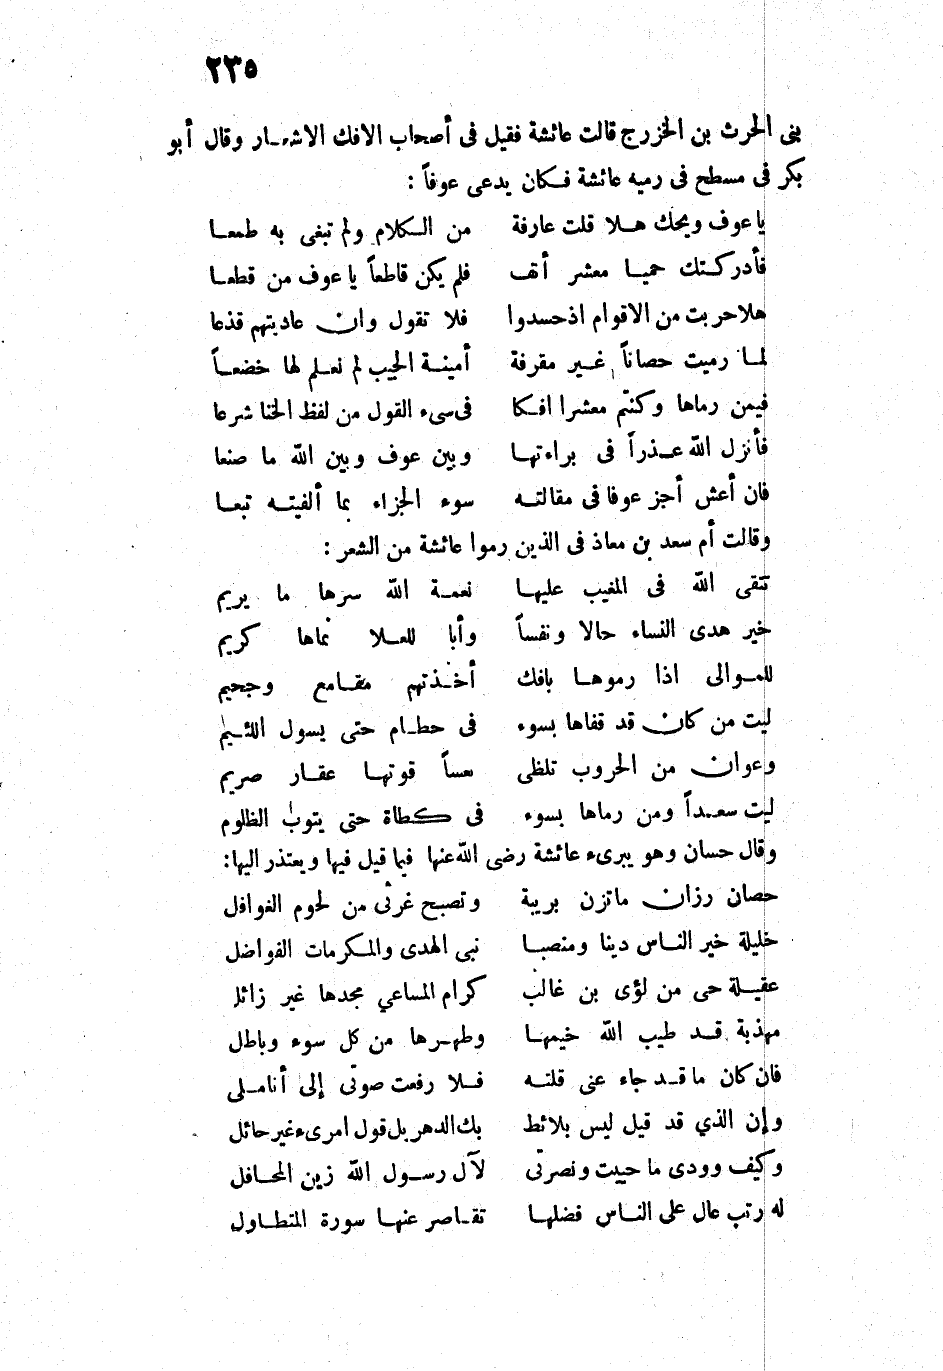 ٢٣٥
بنى الحرث بن الخزرج قالت عائشة فقيل فى أصحاب الافك الاشعار وقال أبو
بكر فى مسطح فى رميه عائشة فكان يدعى عوفاً :
ياعوف ويحك هلا قلت عارفة من الكلام ولم تبغى به طمعا
فأدركتك حميا معشر أنف فلم يكن قاطعاً ياعوف من قطعا
هلاحربت من الاقوام اذحسدوا فلا تقول وان عاديتهم قذعا
لما رميت حصاناً غير مقرفة أمينة الجيب لم نعلم لها خضعاً
فيمن رماها وكنتم معشرا افكا فى سىء القول من لفظ الخنا شرعا
فأنزل الله عذراً فى براءتها وبين عوف وبين الله ما صنعا
فان أعش أجز عوفا فى مقالته سوء الجزاء بما ألفيته تبعا
وقالت أم سعد بن معاذ فى الذين رموا عائشة من الشعر :
تتقى الله فى المغيب عليها نعمة الله سرها ما يريم
خير هدى النساء حالا ونفساً وأبا للعلا نماها كريم
للموالى اذا رموها بافك أخذتهم مقامع وجحيم
ليت من كان قد قفاها بسوء فى حطام حتى يسول اللئيم
وعوان من الحروب تلظى قوتها عقار صريم
ليت سعداً ومن رماها بسوء فى كظاة حتى يتوب الظلوم
وقال حسان وهو يبرىء عائشة رضى الله عنها فيما قيل فيها ويعتذر اليها:
حصان رزان ماتزن بريبة وتصبح غرثى من لحوم الغوافل
خليلة خير الناس دينا ومنصبا نبى الهدى والمكرمات الفواضل
عقيلة حى من لؤى بن غالب كرام المساعي مجدها غير زائل
مهذبة قد طيب الله خيمها وطهرها من كل سوء وباطل
فان كان ما قد جاء عنى قلته فلا رفعت صوتى إلى أناملى
وإن الذي قد قيل ليس بلائط بك الدهر بل قول امرىء غير حائل
وكيف وودى ما حييت ونصرتى لآل رسول الله زين المحافل
له رتب عال على الناس فضلها تقاصر عنها سورة المتطاول